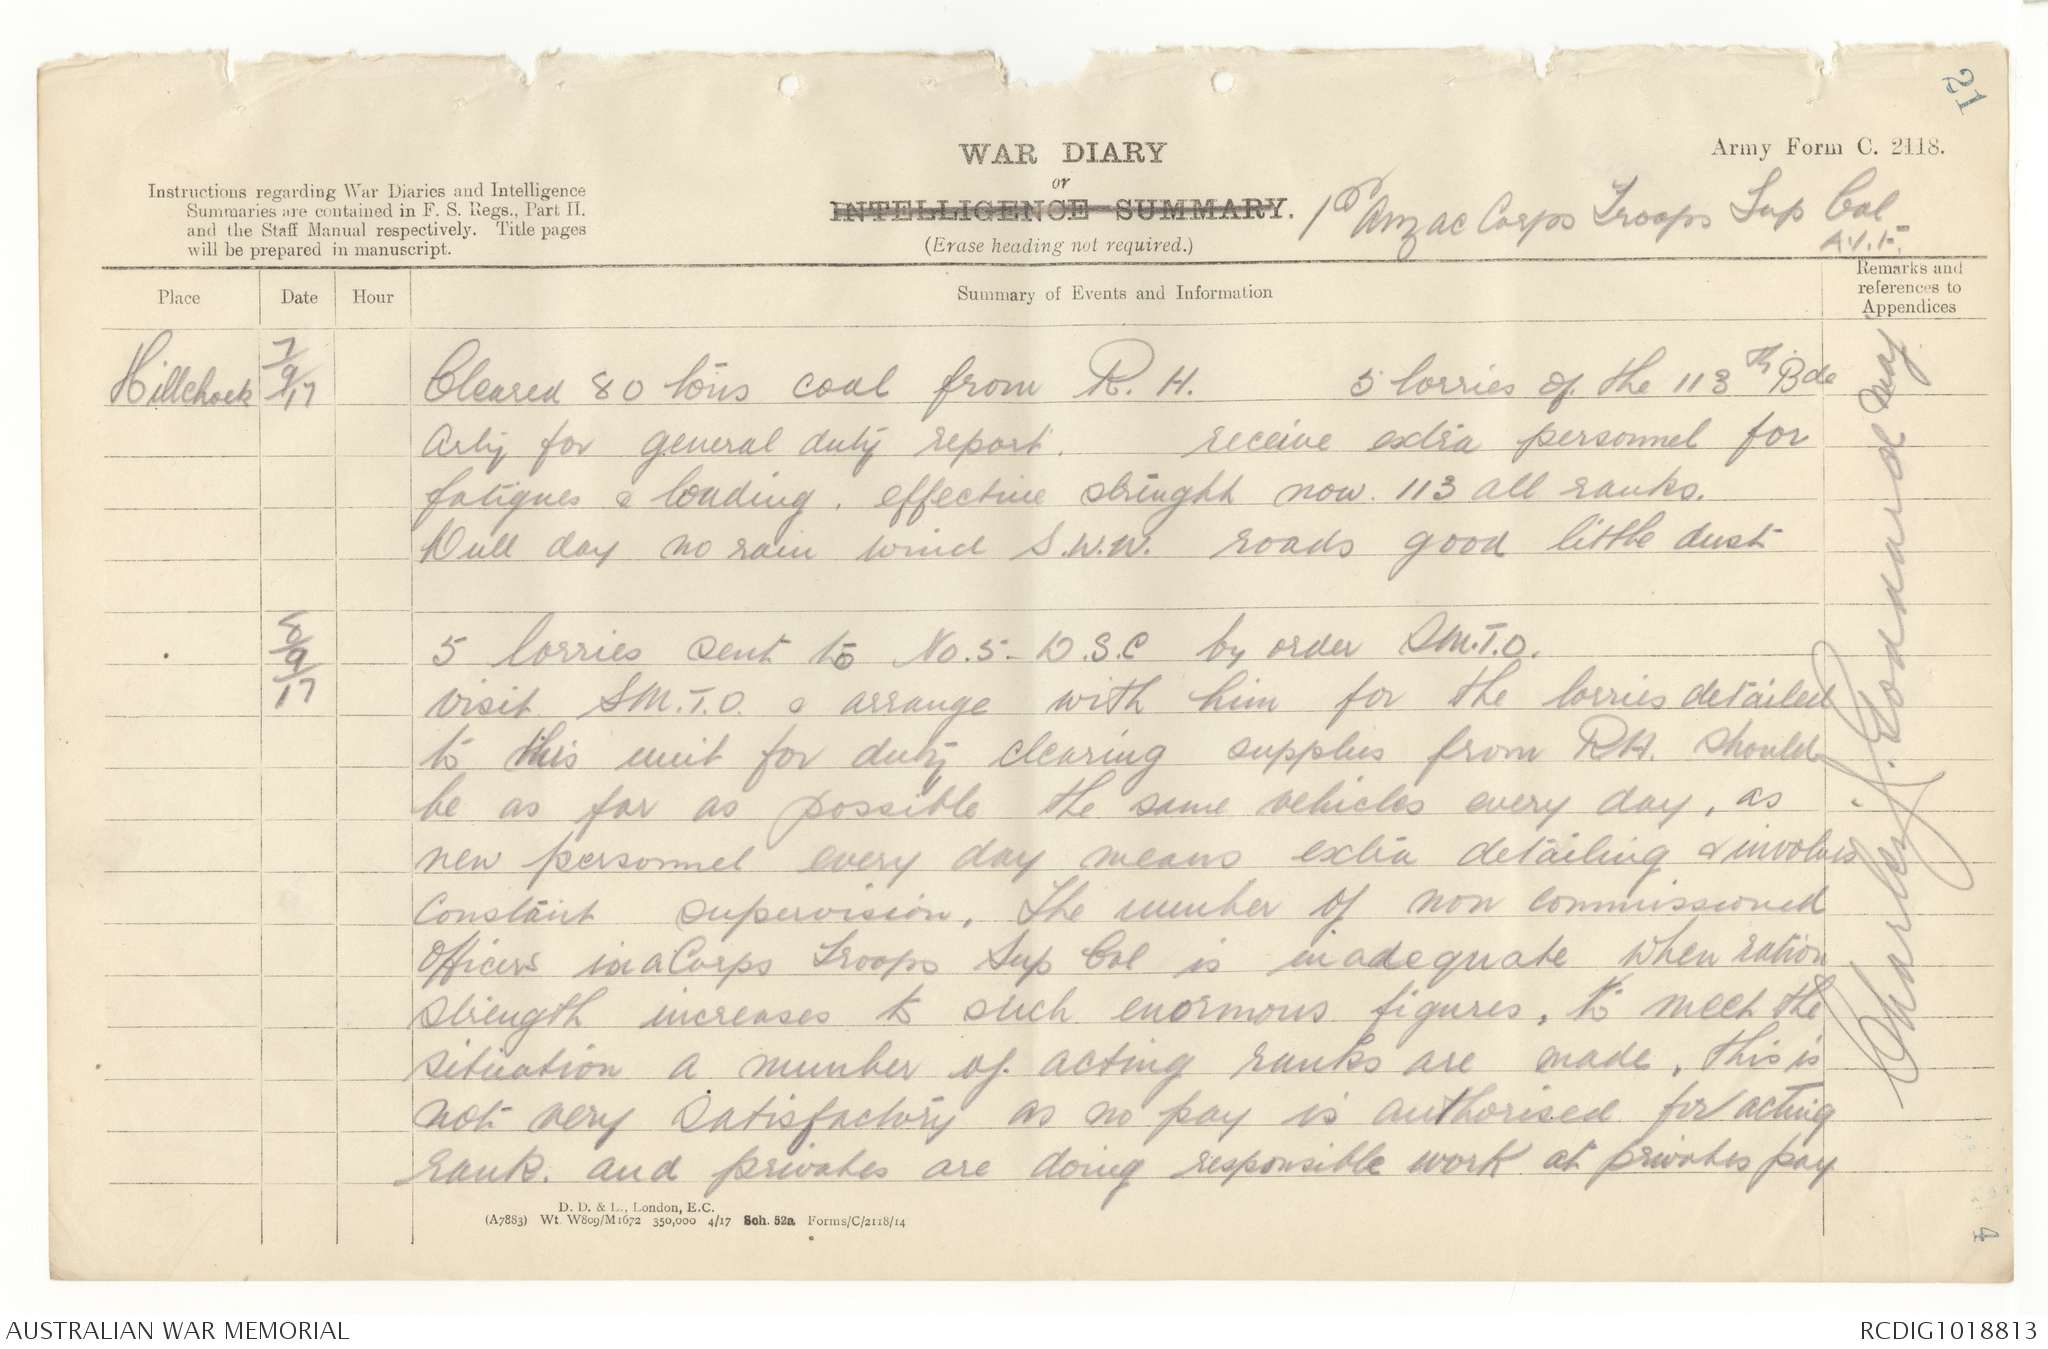 21
WAR DIARY
or
INTELLIGENCE SUMMARY.
(Erase heading not required.)
Army Form C. 2118.
Instructions regarding War Diaries and Intelligence
Summaries are contained in F. S. Regs., Part II.
and the Staff Manual respectively. Title pages
will be prepared in manuscript.
1st Anzac Corps Troops Sup Col
A.I.F.
Place
Date
Hour
Summary of Events and Information
Remarks and
references to
Appendices
Hillehoek 7/9/17 Cleared 80 tons coal from R.H. 5 lorries of the 113th Bde
Arty for general duty report. receive extra personnel for
fatigues & loading. effective strenght now 113 all ranks.
Dull day no rain wind S.W.W. roads good little dust
8/9/17 5 lorries sent to No. 5 D.S.C by order S.M.T.O.
visit S.M.T.O. & arrange with him for the lorries detailed
to this unit for duty clearing supplies from R.H. should
be as far as possible the same vehicles every day, as
new personnel every day means extra detailing & involves
constant supervision. The number of non commissioned
officers in a Corps Troops Sup Col is inadequate when ration
strength increases to such enormous figures, to meet the
situation a number of acting ranks are made, this is
not very satisfactory as no pay is authorised for acting
rank. and privates are doing responsible work at privates pay
Charles J. Goddard Maj
D. D. & L., London, E.C.
(A7883) Wt. W809/M1672 350,000 4/17 Sch. 52a Forms/C/2118/14
4
AUSTRALIAN WAR MEMORIAL
RCDIG1018813